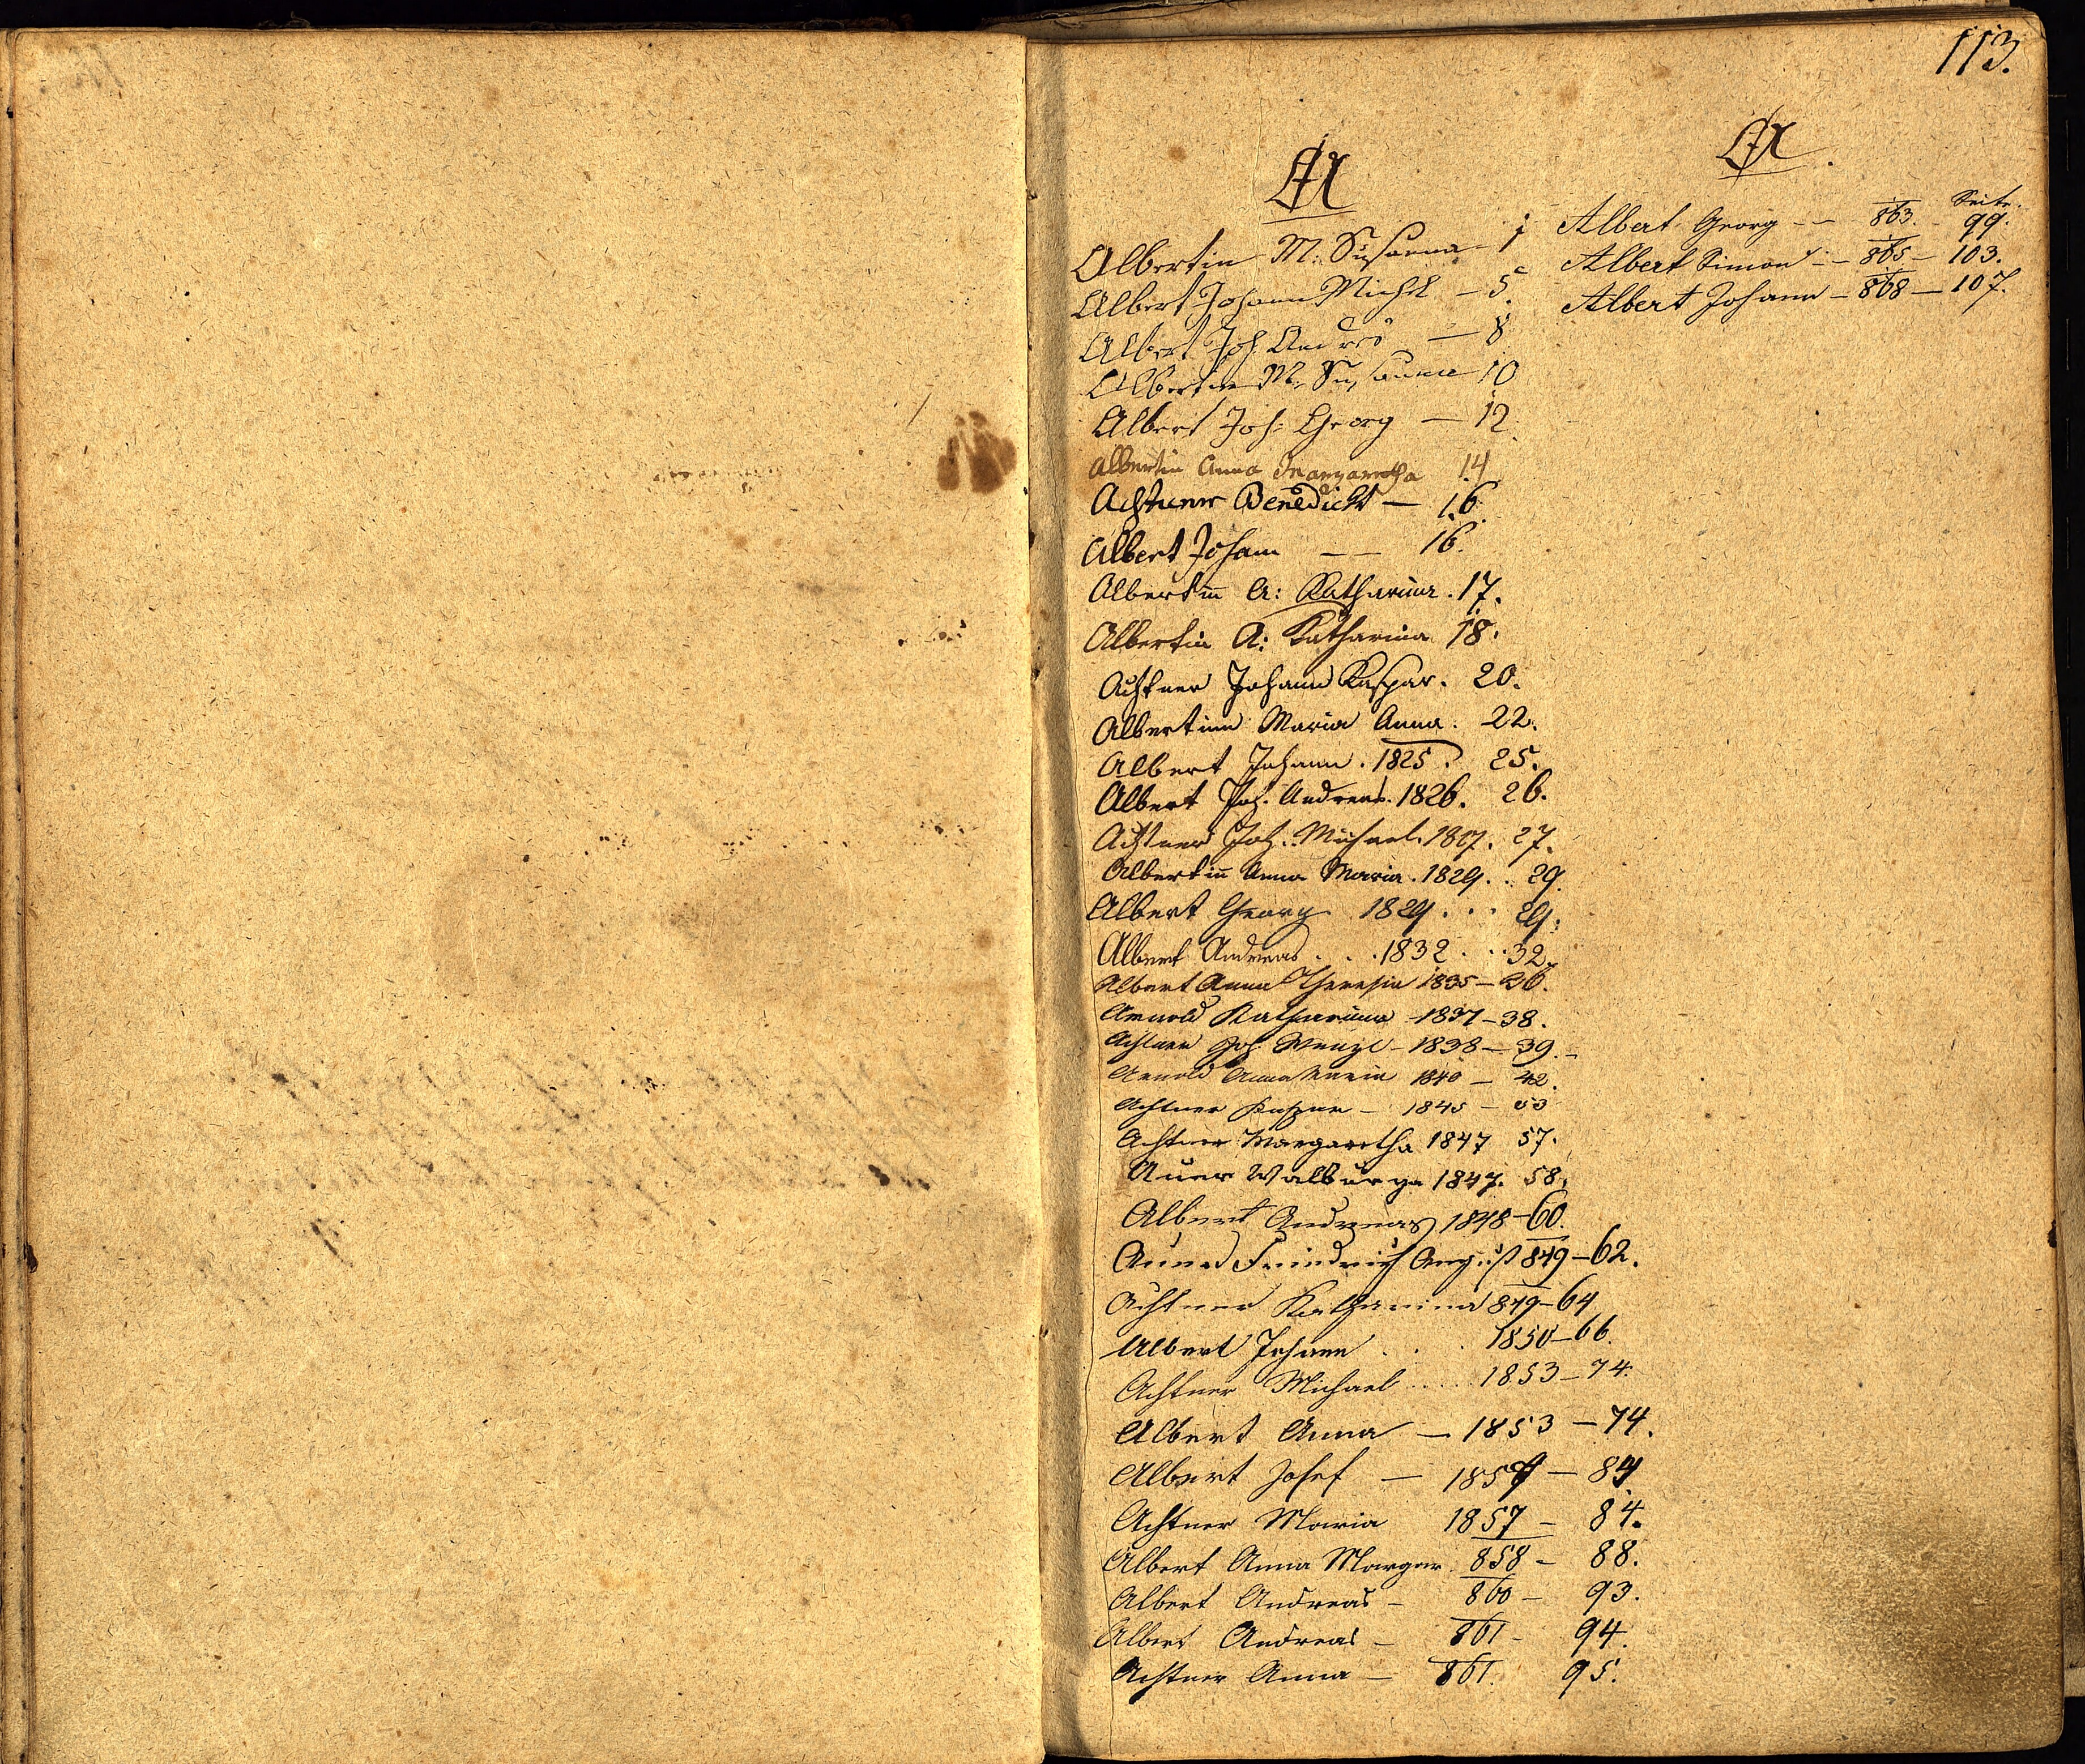 113.
A
Albertin M: Susanna - 1
Albert Johann Michl - 5.
Albert Joh Andres - 8
Albertin M: Susanna 10
Albert Joh: Georg - 12.
Albertin Anna Margaretha 14
Achtner Benedickt - 16.
Albert Johann - - 16.
Albertin A: Katharina. 17.
Albertin A: Katharina 18.
Achtner Johann Kaspar. 20.
Albertinn Maria Anna. 22.
Albert Johann. 1825. 25.
Albert Joh. Andreas. 1826. 26.
Achtner Joh. Michael. 27.
Albertin Anna Maria. 1829. . 29.
Albert Georg. 1829. . . 29.
Albert Andreas. . . 1832. . . 32.
Albert Anna Theresia 1835 - 36.
Arnold Katharina - 1837 - 38.
Achtner Joh. Wenzl - 1838 - 39. -
Arnold Anna Maria 1840 - 42.
Achtner Kaspar - 1845 - 53
Achtner Margaretha 1847 57.
Auer Walburga 1847. 58.
Albert Andreas 1848 - 60.
Friedrich August 849 - 62.
Achtner Katharina 849 - 64
Albert Johann . . . 1850 - 66.
Achtner Michael . . . . 1853 - 74.
Albert Anna - 1853 - 74.
Albert Josef - 1857 - 84
Achtner Maria 1857 - 84.
Albert Anna Margar 858 - 88.
Albert Andreas - 860 - 93.
Albert Andreas - 861 - 94.
Achtner Anna - 861. 95.
A.
Seite.
Albert Georg - - 863. - 99.
Albert Simon - - 865 - 103.
Albert Johann - 868 - 107.